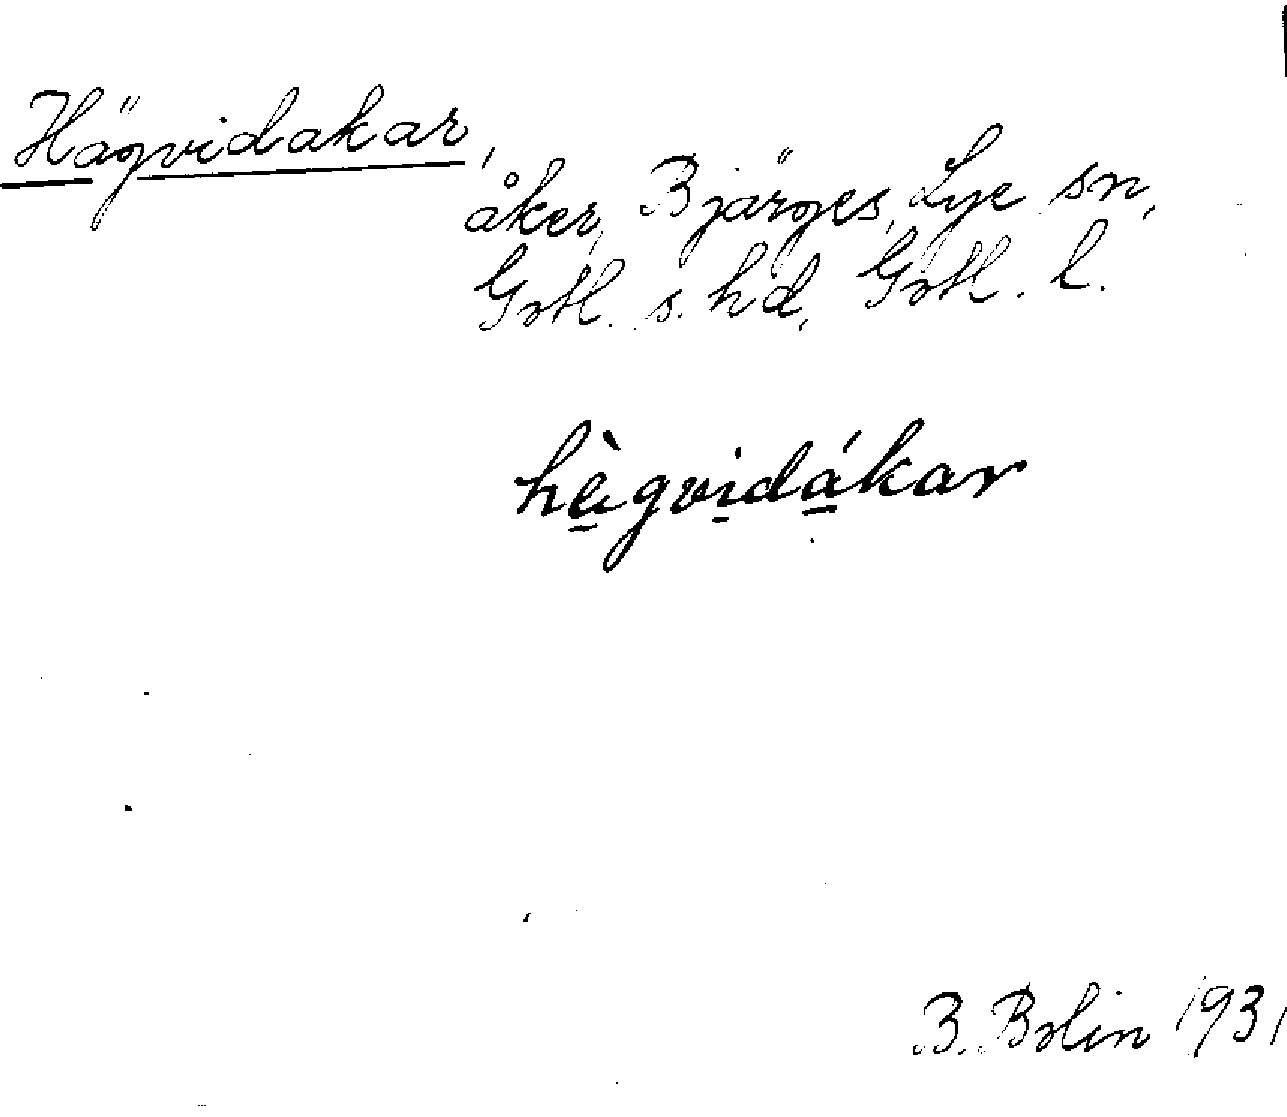 Hägvidakar,
åker, Bjärges, Lye sn,
Gotl. s. hd, Gotl. l.
hè̱gvi̱dá̱kar
B. Bolin 1931